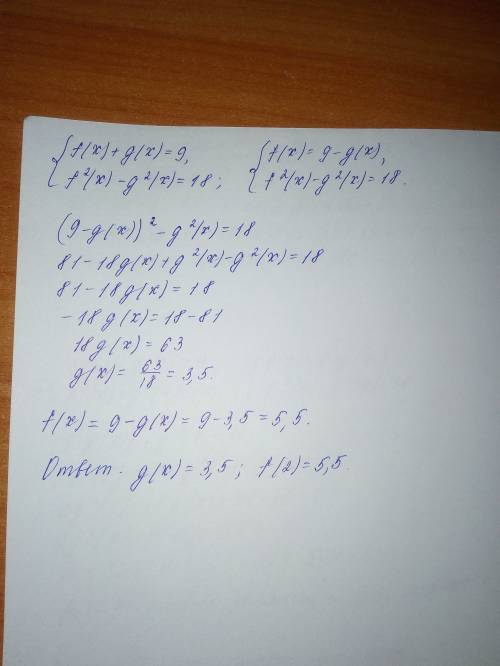 {f(x)+g(x)=9, {f(x)=9-g(x),
f²(x)-g²(x)=18; f²(x)-g²(x)=18.
(9-g(x))²-g²(x)=18
81-18g(x)+g²(x)-g²(x)=18
81-18g(x)=18
-18g(x)=18-81
18g(x)=63
g(x)= 63/18 =3,5.
f(x)= 9-g(x)=9-3,5=5,5.
Ответ. g(x)=3,5; f(2)=5,5.